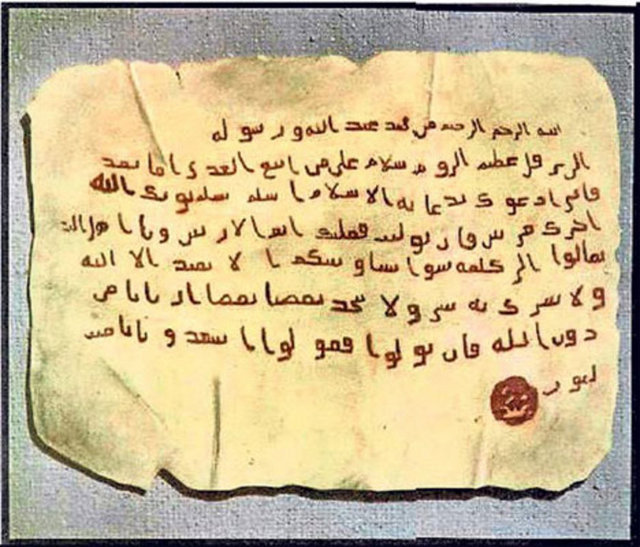 الله الرحمن الرحيم من محمد عبد الله ورسوله
الى هرقل عظيم الروم سلام على من اتبع الهدى اما بعد
فانى ادعوك بدعاية الاسلام اسلم تسلم يوتك الله
اجرك مرتين فان توليت فعليك اثم الاريسين ويا اهل الكت
تعالوا الى كلمة سوا بيننا وبينكم ا لا نعبد الا الله
ولا نشرك به شيا ولا يتخد بعضنا بعضا اربابا من
دون الله فان تولوا فقولوا اشهدو بانا مس
لمون